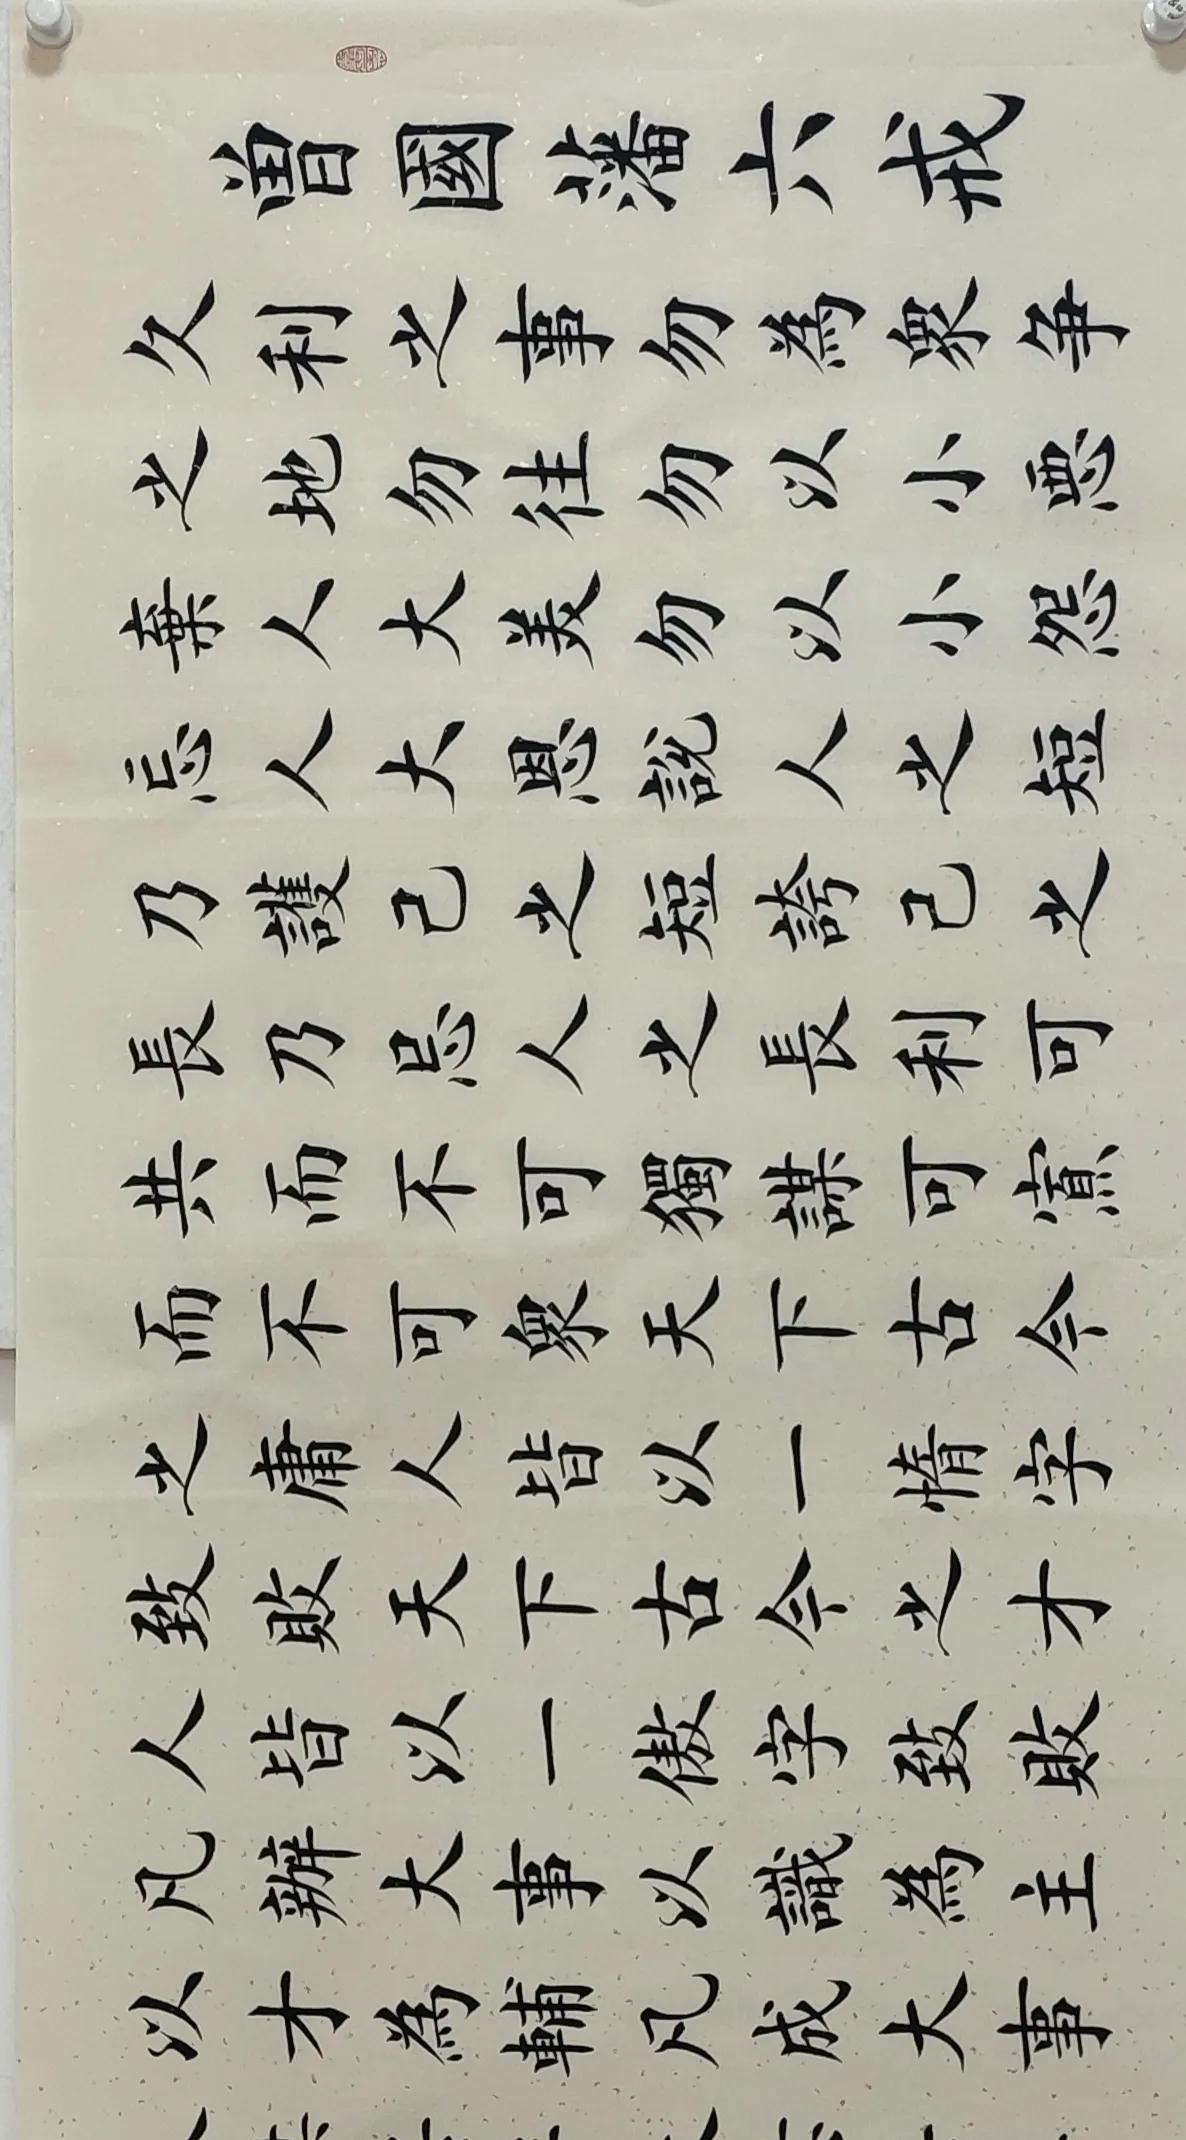 曾國藩六戒
久利之事勿為衆争
之地勿往勿以小悪
棄人大美勿以小怨
忘人大恩說人之短
乃護己之短誇己之
長乃忌人之長利可
共而不可獨謀可寡
而不可衆天下古今
之庸人皆以一惰字
致敗天下古今之才
人皆以一傲字致敗
凡辦大事以識為主
以才為輔凡成大事